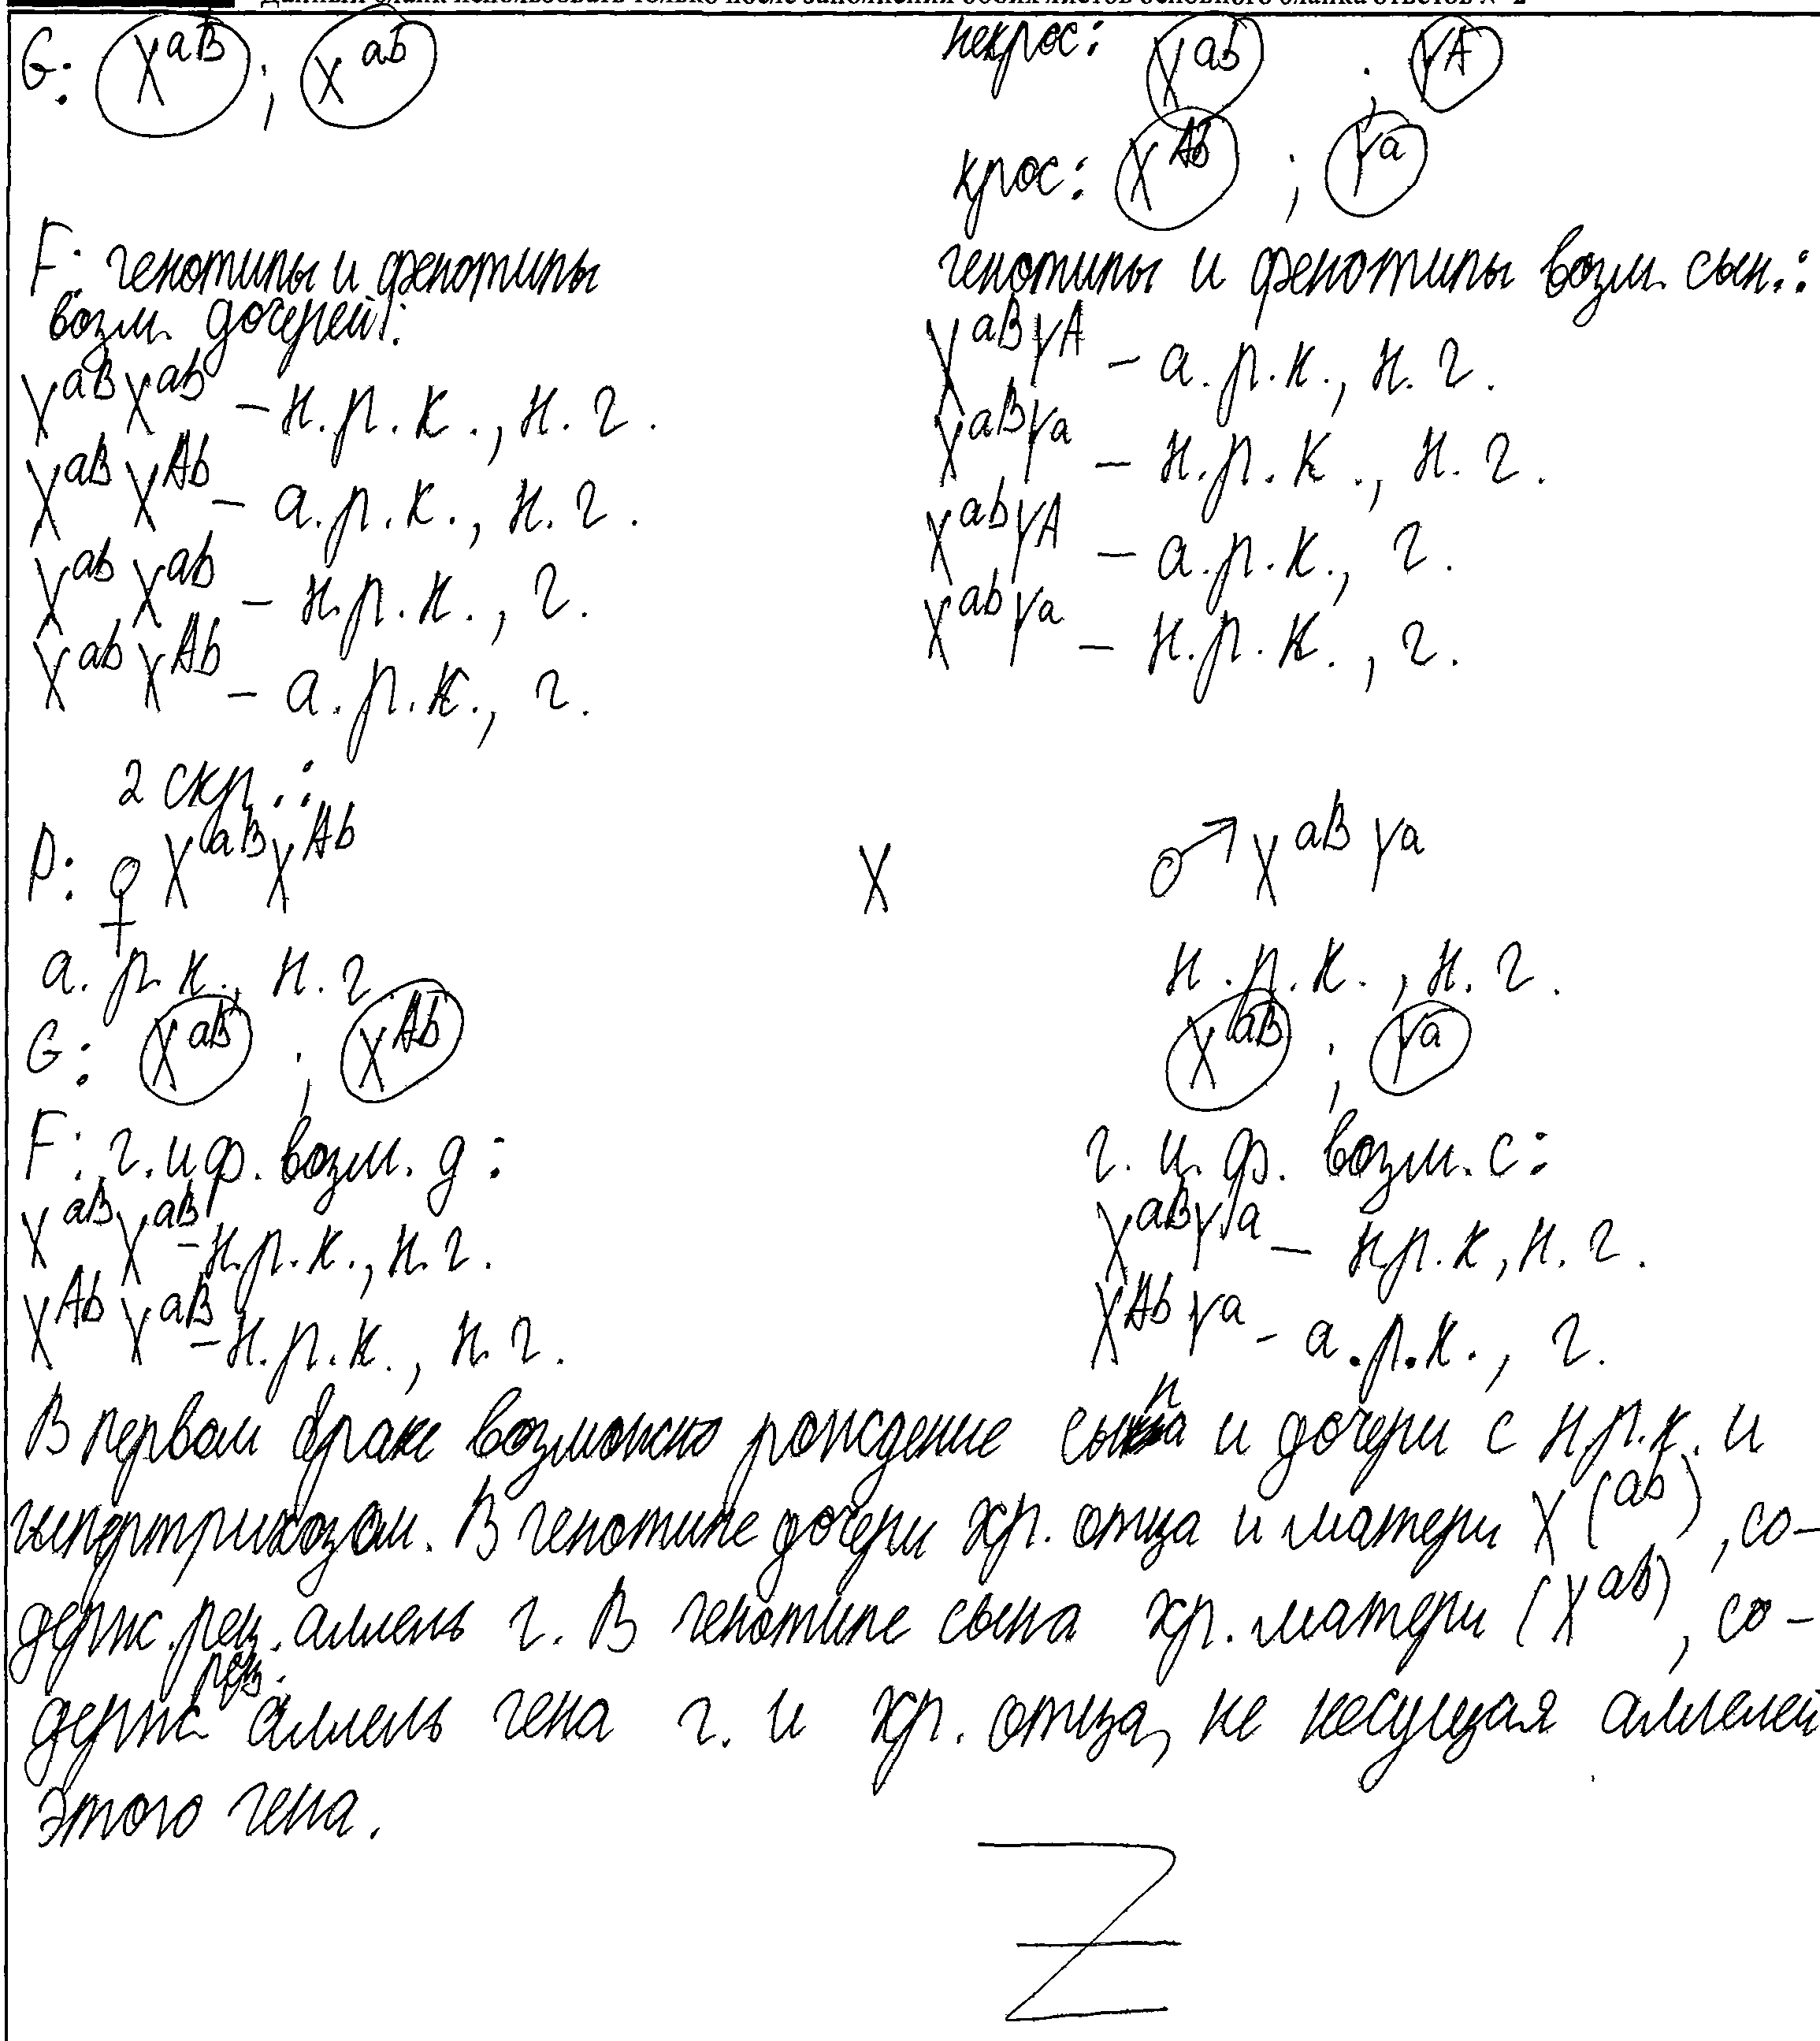 Данный бланк использовать только после заполнения обоих листов основного бланка ответов № 2
G: X^aB ; X^ab некрос: X^ab ; Y^A
крос: X^Ab ; Y^a
F: генотипы и фенотипы генотипы и фенотипы возм. сын.:
возм. дочерей:
X^aB X^ab – н.р.к., н.г. X^aB Y^A – а.р.к., н.г.
X^aB X^Ab – а.р.к., н.г. X^aB Y^a – н.р.к., н.г.
X^ab X^ab – н.р.к., г. X^ab Y^A – а.р.к., г.
X^ab X^Ab – а.р.к., г. X^ab Y^a – н.р.к., г.
2 скр.:
P: ♀ X^aB X^Ab X ♂ X^aB Y^a
а.р.к., н.г. н.р.к., н.г.
G: X^aB ; X^Ab X^aB ; Y^a
F: г. и ф. возм. д: г. и ф. возм. с:
X^aB X^aB – н.р.к., н.г. X^aB Y^a – н.р.к, н.г.
X^Ab X^aB – н.р.к., н.г. X^Ab Y^a – а.р.к., г.
В первом браке возможно рождение сына и дочери с н.р.к. и
гипертрихозом. В генотипе дочери хр. отца и матери X (^ab), со-
держ. рец. аллель г. В генотипе сына хр. матери (X^ab), со-
держ рец. аллель гена г. и хр. отца, не несущая аллелей
этого гена.
Z